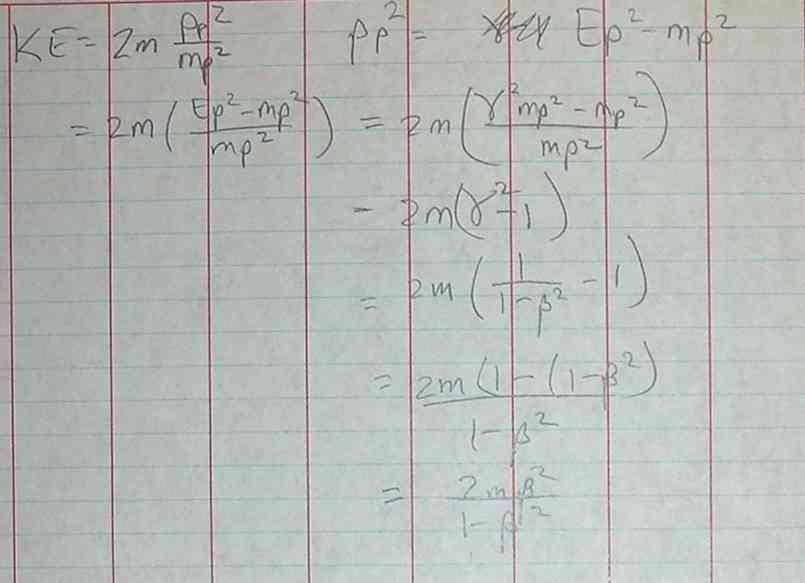 KE = 2m Pp²/mp²   Pp² = Ep² - mp²
= 2m ( (Ep² - mp²)/mp² ) = 2m ( (γ²mp² - mp²)/mp² )
- 2m(γ² - 1)
= 2m ( 1/(1-β²) - 1 )
= 2m (1 - (1-β²) / 1-β²
= 2mβ²/1-β²